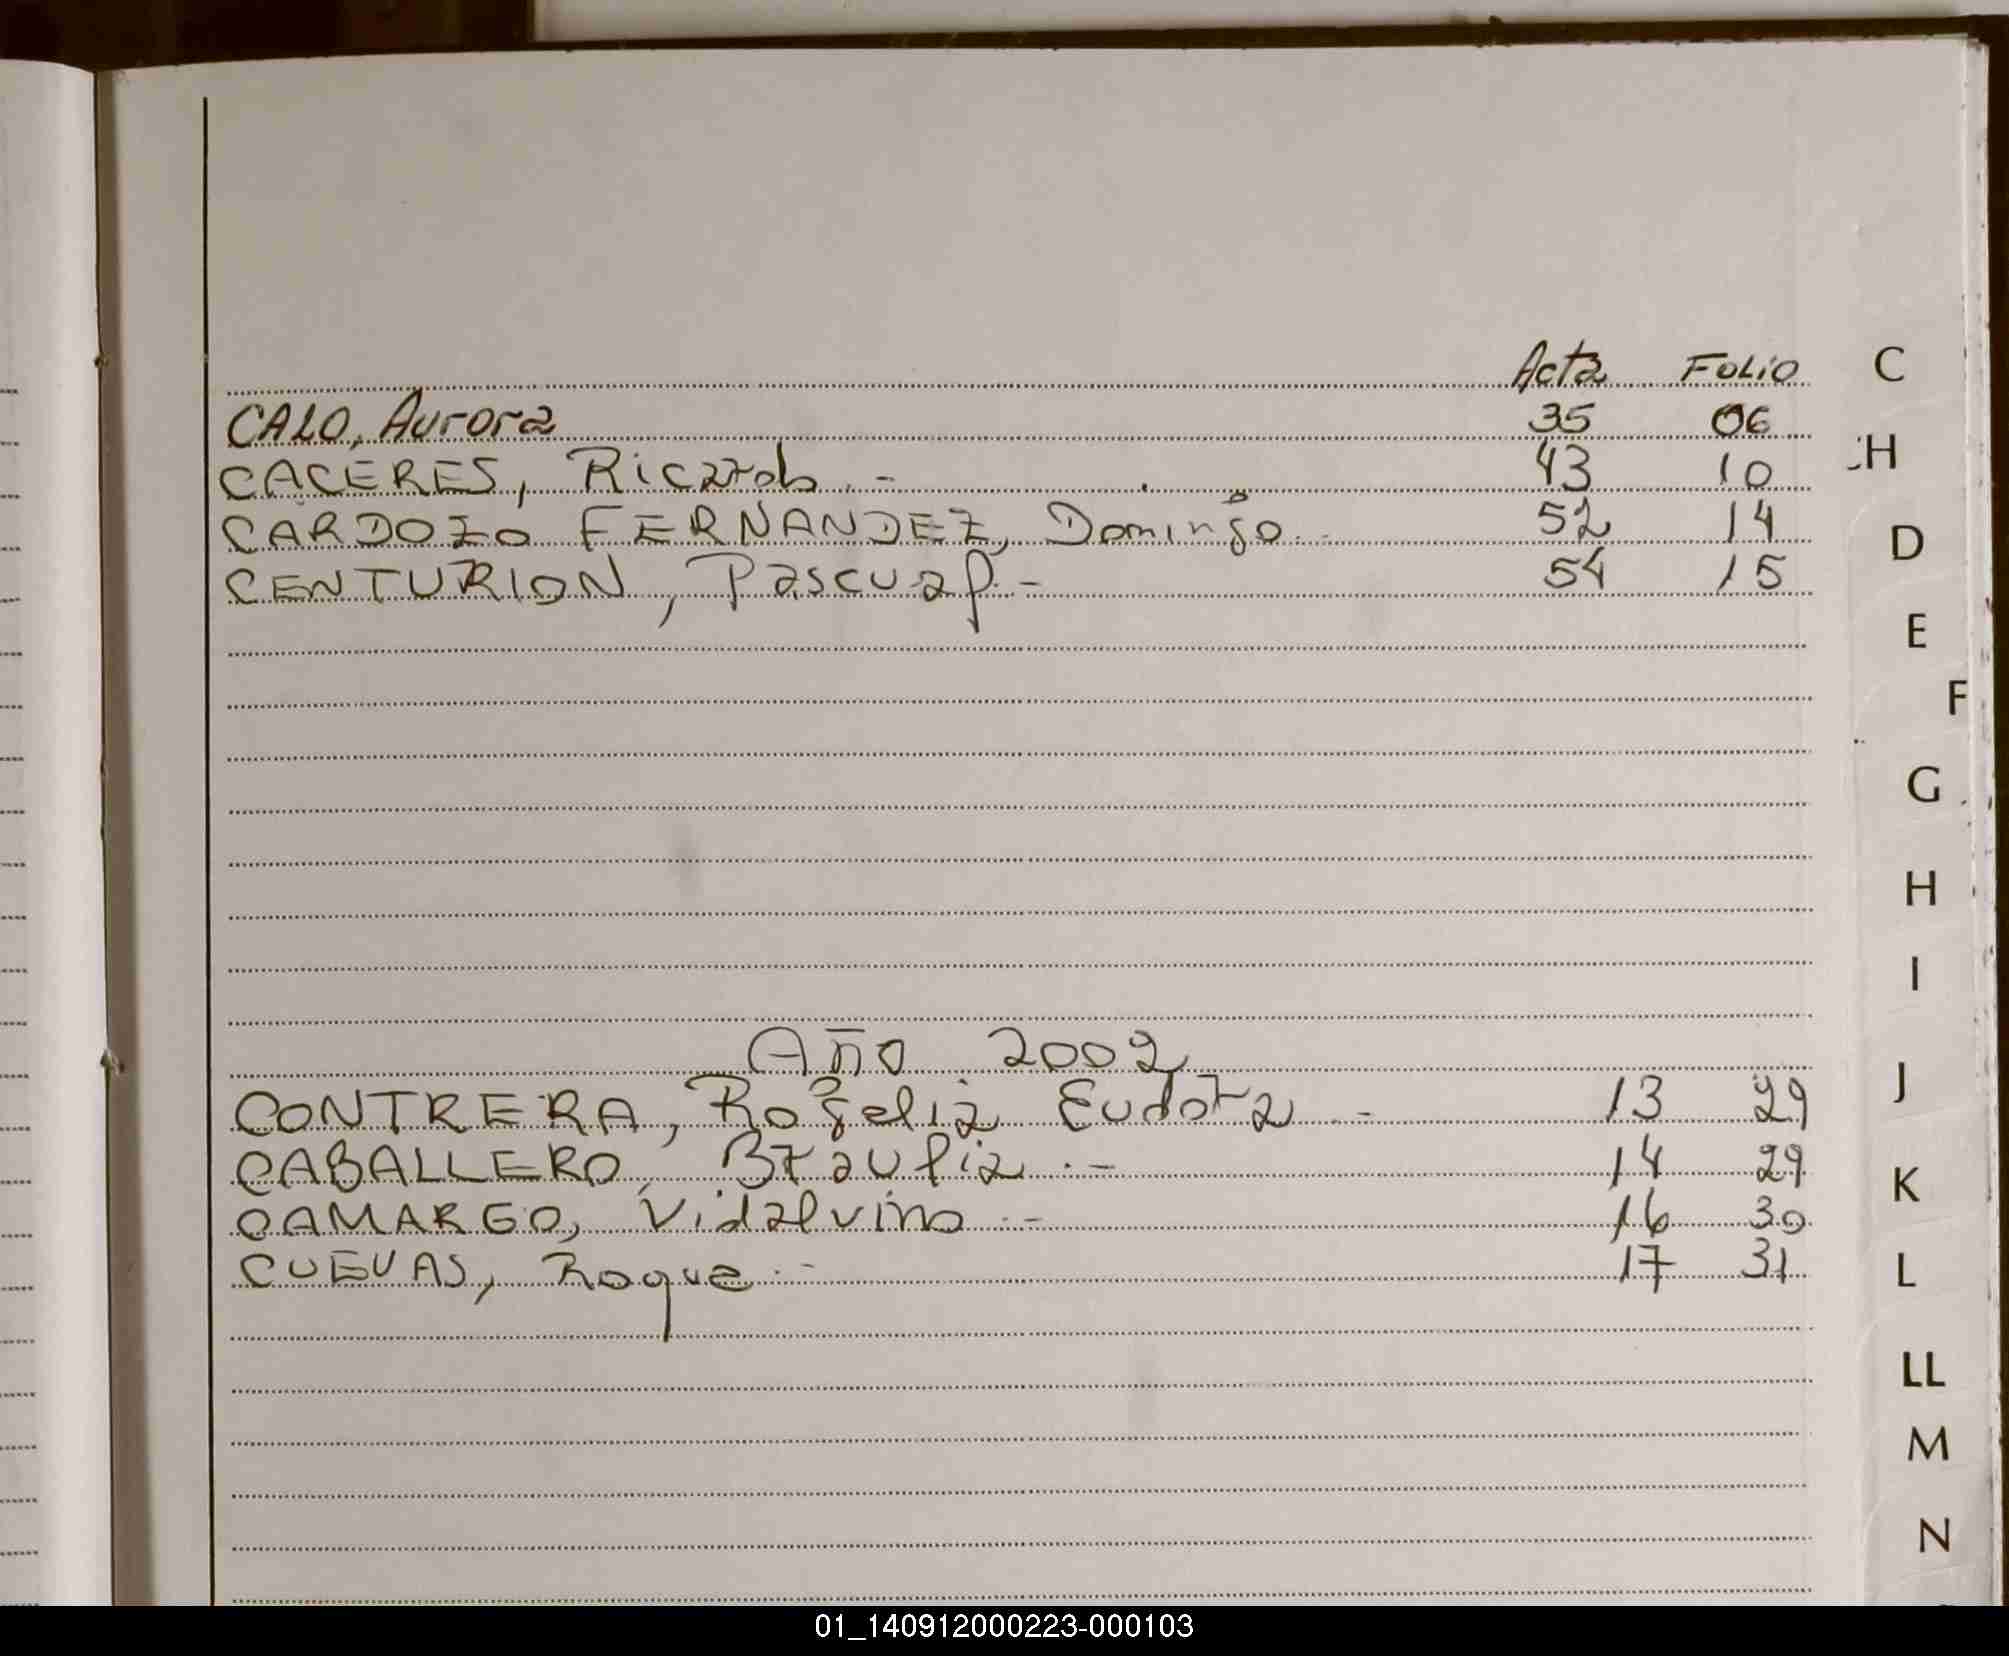 Acta Folio C
CALO, Aurora 35 06
CACERES, Ricardo .- 43 10 CH
CARDOZO FERNANDEZ, Domingo.- 52 14 D
CENTURION, Pascual.- 54 15
E
F
G
H
I
Año 2002
CONTRERA, Rogelia Eudora .- 13 29 J
CABALLERO, Braulia .- 14 29
CAMARGO, Vidalvino .- 16 30 K
CUEVAS, Roque .- 17 31 L
LL
M
N
01_140912000223-000103